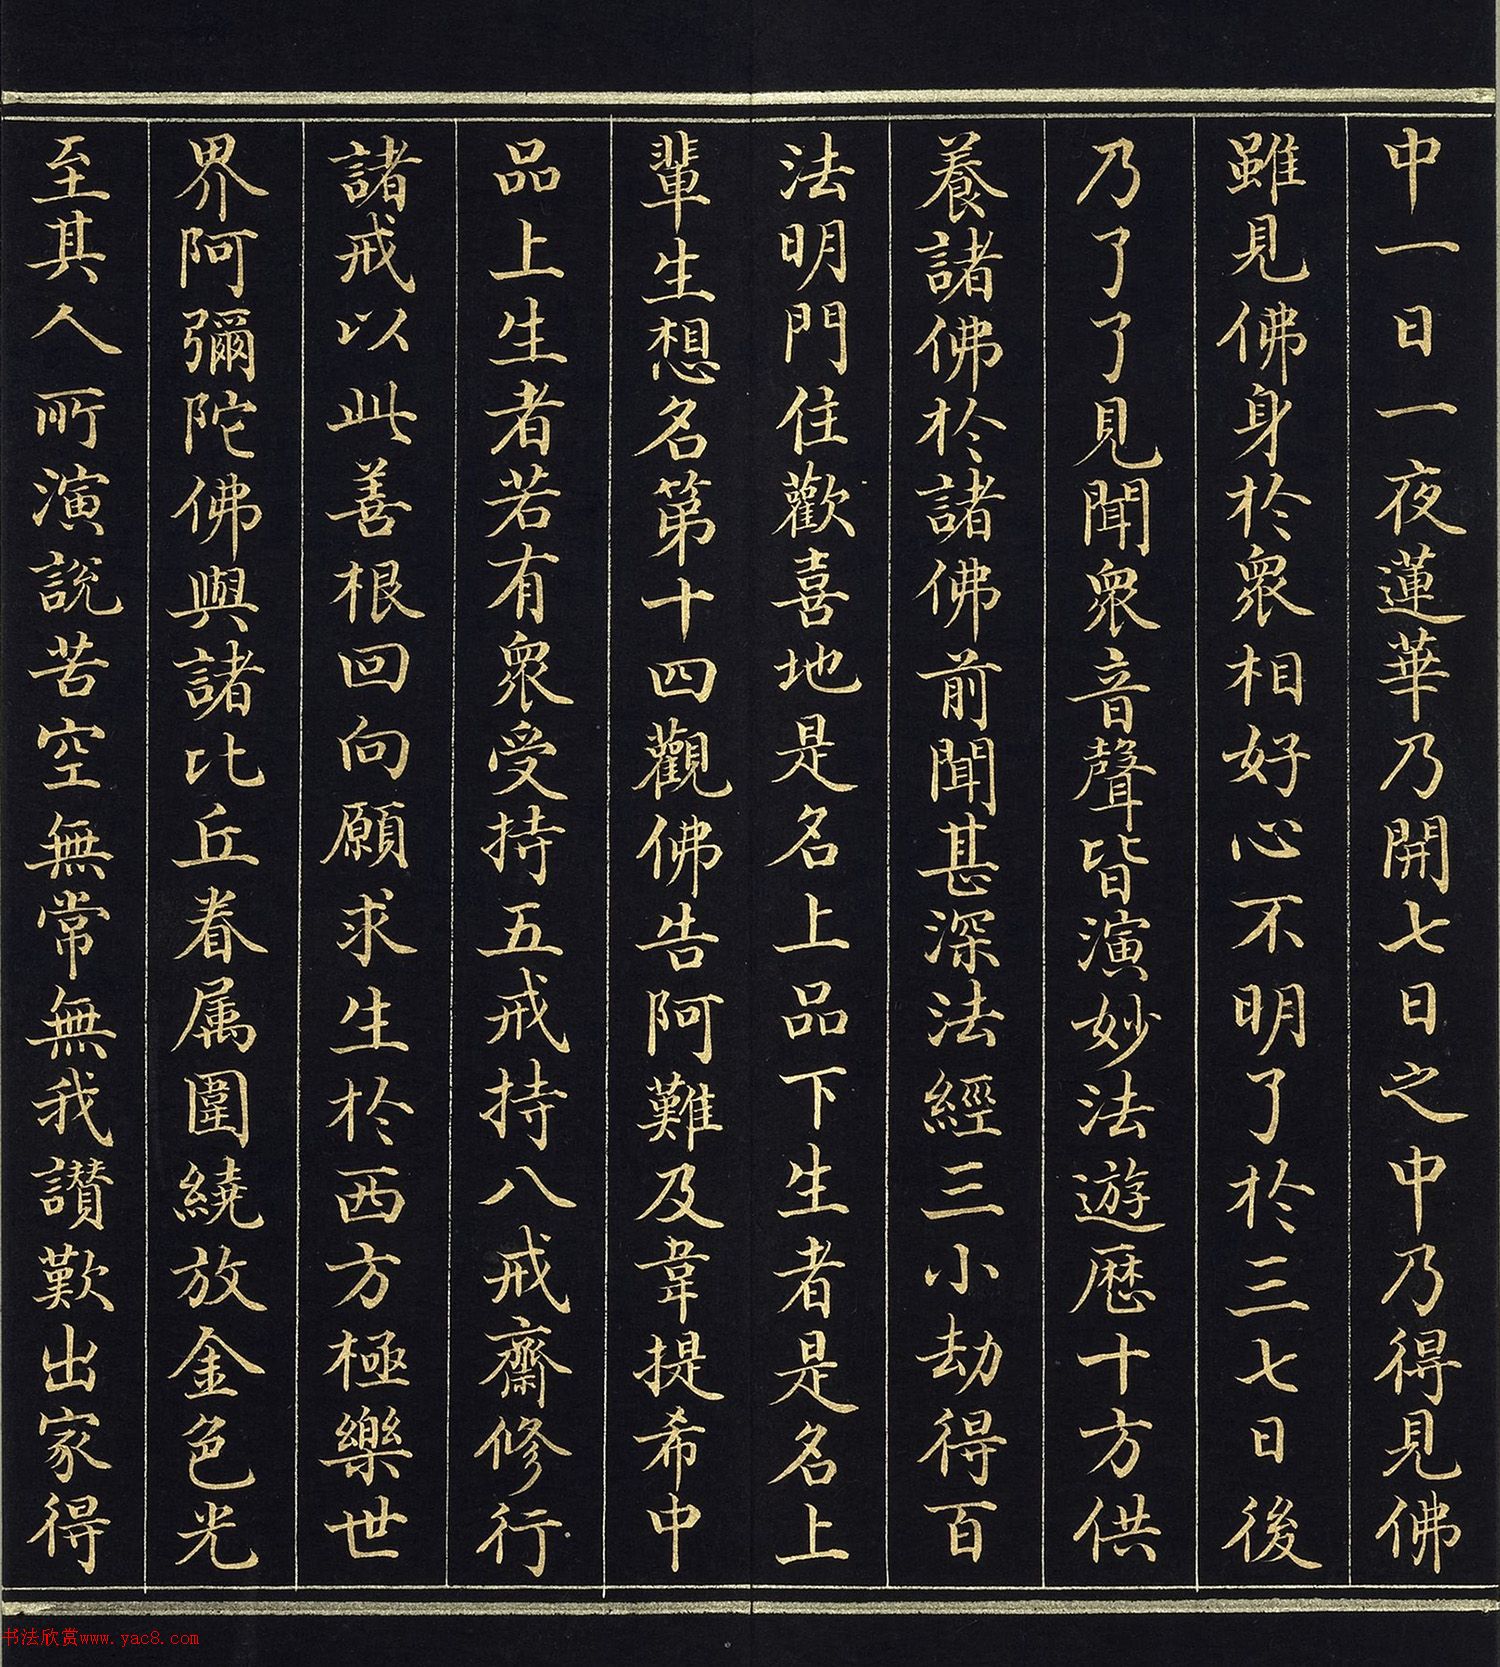 中一日一夜蓮華乃開七日之中乃得見佛
雖見佛身於眾相好心不明了於三七日後
乃了了見聞眾音聲皆演妙法遊歷十方供
養諸佛於諸佛前聞甚深法經三小劫得百
法明門住歡喜地是名上品下生者是名上
輩生想名第十四觀佛告阿難及韋提希中
品上生者若有眾受持五戒持八戒齋修行
諸戒以此善根回向願求生於西方極樂世
界阿彌陀佛與諸比丘眷属圍繞放金色光
至其人所演說苦空無常無我讃歎出家得
书法欣赏www.yac8.com